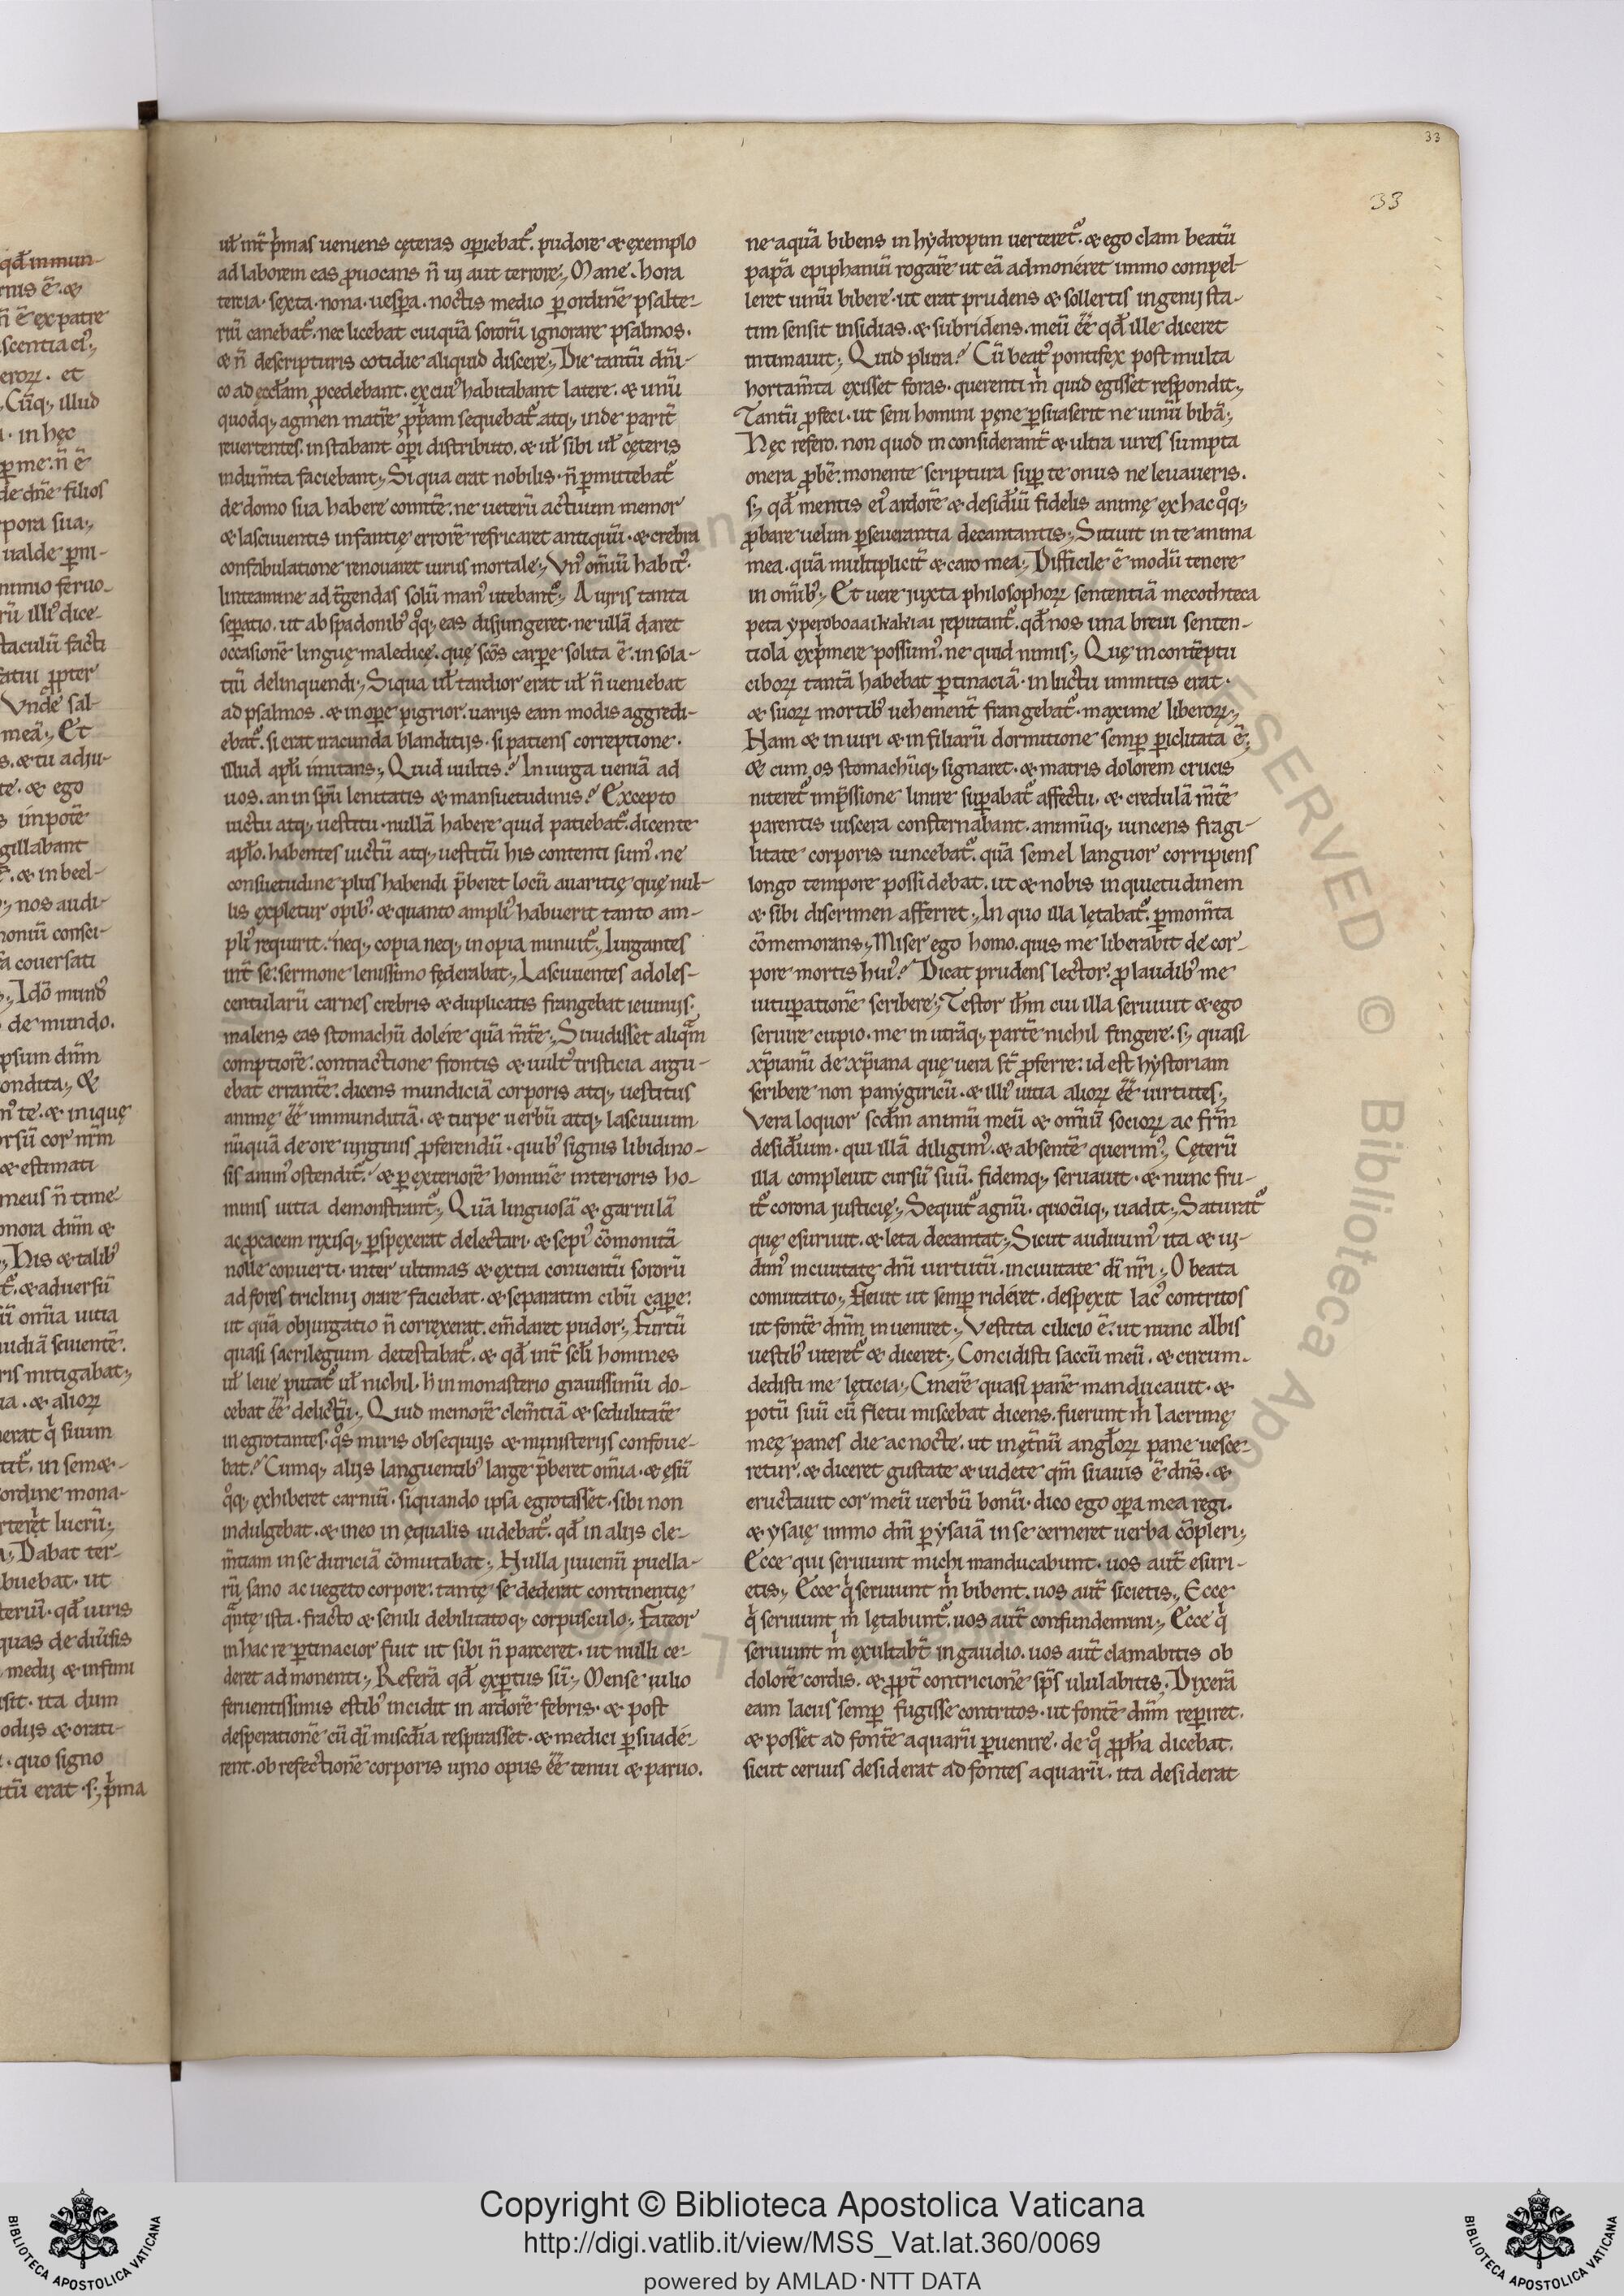 33
33
ul̄ int̄ p̍mas ueniens cęteras op̄iebat᷑. pudore & exemplo
ad laborem eas ꝓuocans n̄ ui aut terrore; Mane. hora
tercia. sexta. nona. uesꝑa. noctis medio ꝑ ordinē psalte-
riū canebat᷑. nec licebat cuiquā sororū ignorare psalmos.
& n̄ descripturis cotidie aliquid discere; Die tantū dn̄i-
co ad ęccl̄am ꝓcedebant. ex cui᾽ habitabant latere. & unū
quodq; agmen matrē ꝓp̍am sequebat᷑. atq; inde parit̄
reuertentes. instabant oꝑi distributo. & ul̄ sibi ul̄ cęteris
indum̄ta faciebant; Si qua erat nobilis. n̄ ꝑmittebat᷑
de domo sua habere comitē. ne ueterū actuum memor
& lasciuientis infantię errorē refricaret antiquū. & crebra
confabulatione renouaret uirus mortale; Vn᾽ om̄iū habit᾽.
linteamine ad t̄gendas solū man᾽ utebant᷑; A uiris tanta
seꝑatio. ut ab spadonib᾽ qͦq; eas disjungeret. ne ullā daret
occasionē linguę maledicę. quę sc̄os carꝑe solita ē. in sola-
tiū delinquendi; Siqua ul̄ tardior erat ul̄ n̄ ueniebat
ad psalmos. & in oꝑe pigrior. uarijs eam modis aggredi-
ebat᷑. si erat iracunda blanditijs. si patiens correptione.
illud apl̄i imitans; Quid uultis? In uirga ueniā ad
uos. an in sp̄u lenitatis & mansuetudinis? Excepto
uictu atq; uestitu. nullā habere quid patiebat᷑. dicente
apl̄o. habentes uictū atq; uestitū his contenti sum᾽. ne
consuetudine plus habendi p̄beret locū auaritię quę nul-
lis expletur opib᾽. & quanto ampli᾽ habuerit tanto am-
pli᾽ requirit. neq; copia neq; inopia minuit᷑; Iurgantes
int̄ se. sermone lenissimo fęderabat; Lasciuientes adoles-
centularū carnes crebris & duplicatis frangebat ieiunijs;
malens eas stomachū dolére quā m̄tē; Si uidisset aliqᵃm
comptiorē. contractione frontis & uult᾽ tristicia argu-
ebat errantē. dicens mundiciā corporis atq; uestitus
animę ēē immunditiā. & turpe uerbū atq; lasciuum
nūquā de ore uirginis ꝓferendū. quib᾽ signis libidino-
sis anim᾽ ostendit᷑. & ꝑ exteriorē hominē interioris ho-
minis uitia demonstrant᷑; Quā linguosā & garrulā
ac ꝓcacem rixisq; ꝑspexerat delectari. & sepi᾽ cōmonitā
nolle conuerti. inter ultimas & extra conuentū sororū
ad fores triclinij orare faciebat. & separatim cibū caꝑe.
ut quā objurgatio n̄ correxerat. em̄daret pudor; Furtū
quasi sacrilegium detestabat᷑. & qd̄ int̄ scl̄i homines
ul̄ leue putat᷑ ul̄ nichil. h̍ in monasterio grauissimū do-
cebat ēē delictū; Quid memorē clem̄tiā & sedulitatē
in egrotantes. qᵃs miris obsequijs & ministerijs confoue-
bat? Cumq; alijs languentib᾽ large p̄beret om̄ia. & esū
qͦq; exhiberet carniū. siquando ipsa egrotasset. sibi non
indulgebat. & in eo inęqualis uidebat᷑. qd̄ in alijs cle-
m̄tiam in se duriciā cōmutabat; Nulla juuenū puella-
rū sano ac uegeto corpore. tantę se dederat continentię
qᵃntę ista. fracto & senili debilitatoq; corpusculo; Fateor
in hac re ꝑtinacior fuit ut sibi n̄ parceret. ut nulli ce-
deret admonenti; Referā qd̄ exꝑtus sū; Mense iulio
feruentissimis estib᾽ incidit in ardorē febris. & post
desperationē cū dī misc̄dia respirasset. & medici ꝑsuadé-
rent. ob refectionē corporis uino opus ēē tenui & paruo.
ne aquā bibens in hydropim uerteret᷑. & ego clam beatū
papā epiphaniū rogarē ut eā admonéret immo compel-
leret uinū bibere. ut erat prudens & sollertis ingenij sta-
tim sensit insidias. & subridens. meū ēē qd̄ ille diceret
intimauit; Quid plura? Cū beat᾽ pontifex post multa
hortam̄ta exisset foras. querenti m̍ quid egisset respondit;
Tantū ꝓfeci. ut seni homini pęne ꝑsuaserit ne uinū bibā;
Hęc refero. non quod inconsiderant̄ & ultra uires sumpta
onera ꝓbē. monente scriptura suꝑ te onus ne leuaueris.
s; qd̄ mentis ei᾽ ardorē & desid̄iū fidelis animę ex hac qͦq;
ꝓbare uelim ꝑseuerantia decantantis; Sitiuit in te anima
mea. quā multiplicit̄ & caro mea; Difficile ē modū tenere
in om̄ib᾽; Et uere juxta philosophoꝝ sententiā mecothteca
peta yperoboaaikakiai reputant᷑. qd̄ nos una breui senten-
tiola exp̍mere possum᾽. ne quid nimis; Quę in contēptu
ciboꝝ tantā habebat ꝑtinaciā. in luctu inmitis erat.
& suoꝝ mortib᾽ uehement̄ frangebat᷑. maxime liberoꝝ;
Nam & in uiri & in filiarū dormitione semꝑ ꝑiclitata ē;
& cum os stomachūq; signaret. & matris dolorem crucis
niteret᷑ imp̄ssione linire suꝑabat᷑ affectu. & credulā m̄tē
parentis uiscera consternabant. animūq; uincens fragi-
litate corporis uincebat᷑. quā semel languor corripiens
longo tempore possidebat. ut & nobis inquietudinem
& sibi discrimen afferret; In quo illa lętabat᷑. ꝑ mom̄ta
cōmemorans; Miser ego homo. quis me liberabit de cor-
pore mortis hui᾽? Dicat prudens lector. ꝓ laudib᾽ me
uituꝑationē scribere; Testor ih̄m cui illa seruiuit & ego
seruire cupio. me in utrāq; partē nichil fingere. s; quasi
xp̄ianū de xp̄iana quę uera st̄ ꝓferre. id est hystoriam
scribere non panygiricū. & illi᾽ uitia alioꝝ ēē uirtutes;
Vera loquor scd̄m animū meū & om̄iū socioꝝ ac fr̄m
desid̄ium. qui illā diligim᾽. & absentē querim᾽; Cęterū
illa compleuit cursū suū. fidemq; seruauit. & nunc fru-
it᷑ corona justicię; Sequit᷑ agnū. quocūq; uadit; Saturat᷑
quę esuriuit. & leta decantat; Sicut audiuim᾽ ita & ui-
dim᾽ in ciuitate dn̄i uirtutū. in ciuitate dī nr̄i; O beata
comutatio; Fleuit ut semꝑ ridéret. despexit lac᾽ contritos
ut fontē dn̄m inueniret; Vestita cilicio ē. ut nunc albis
uestib᾽ uteret᷑ & diceret; Concidisti saccū meū. & circum-
dedisti me lęticia; Cinerē quasi panē manducauit. &
potū suū cū fletu miscebat dicens. fuerunt m̍ lacrimę
meę panes die ac nocte. ut in ęt̄nū angl̄oꝝ pane uesce-
retur. & diceret gustate & uidete qm̄ suauis ē dn̄s. &
eructauit cor meū uerbū bonū. dico ego oꝑa mea regi.
& ysaię immo dn̄i ꝑ ysaiā in se cerneret uerba cōpleri;
Ecce qui seruiunt michi manducabunt. uos aut̄ esuri-
etis; Ecce q̍ seruiunt m̍ bibent. uos aut̄ sicietis; Ecce
q̍ seruiunt m̍ lętabunt᷑. uos aut̄ confundemini; Ecce q̍
seruiunt m̍ exultabt̄ in gaudio. uos aut̄ clamabitis ob
dolorē cordis. & ꝓpt̄ contricionē sp̄s ululabitis; Dixerā
eam lacus semꝑ fugisse contritos. ut fontē dn̄m reꝑiret.
& posset ad fontē aquarū ꝑuenire. de qͦ ꝓph̄a dicebat.
sicut ceruus desiderat ad fontes aquarū. ita desiderat
Copyright © Biblioteca Apostolica Vaticana
http://digi.vatlib.it/view/MSS_Vat.lat.360/0069
powered by AMLAD·NTT DATA
BIBLIOTECA APOSTOLICA VATICANA
BIBLIOTECA APOSTOLICA VATICANA